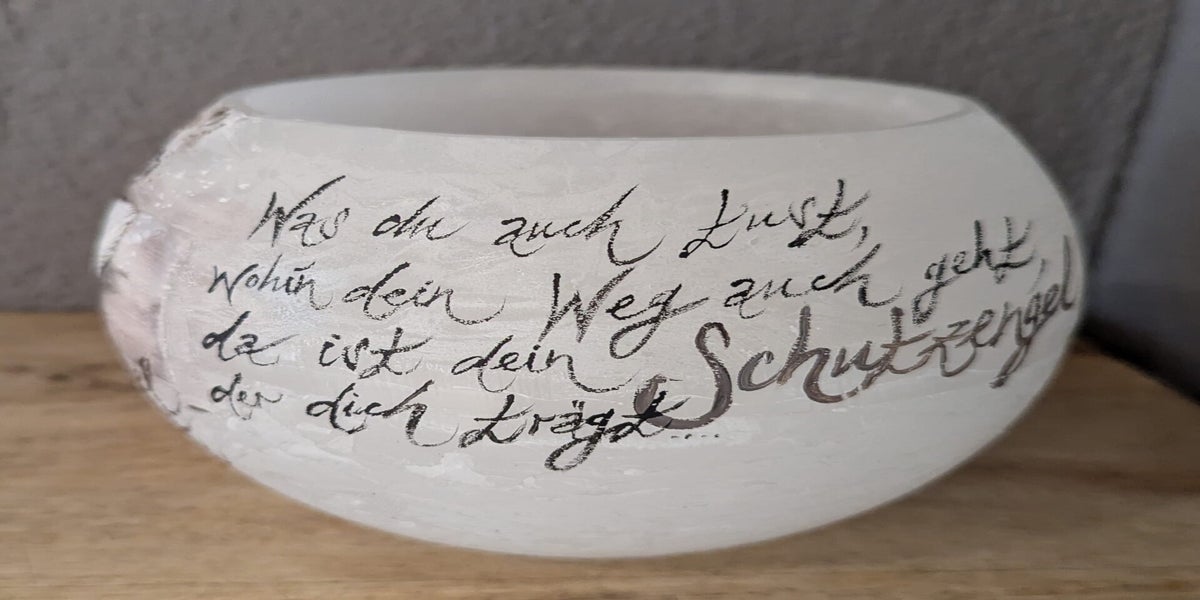 Was du auch tust,
wohin dein Weg auch geht,
da ist dein Schutzengel
der dich trägt....